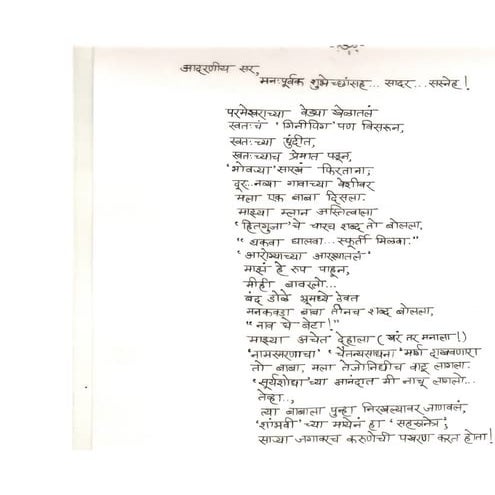 आदरणीय सर,
मनःपूर्वक शुभेच्छांसह... सादर... सस्नेह!
परमेश्वराच्या वेड्या खेळातलं
स्वतःचं 'गिनीपिग' पण विसरून,
स्वतःच्या धुंदीत,
स्वतःच्याच प्रेमात पडून,
'भोवऱ्या' सारखं फिरताना;
दूर.. नव्या गावाच्या वेशीवर
मला एक बाबा दिसला.
माझ्या म्लान अस्तित्वाला
'हितगुजा' चे चारच शब्द तो बोलला.
"थकवा घालवा... स्फूर्ती मिळवा."
'आरोग्याच्या आरश्यातलं'
माझं हे रुप पाहून,
मीही बावरलो...
बंद डोळे भ्रूमध्ये ठेवत
मनकवडा बाबा तीनच शब्द बोलला,
"नाव घे बेटा!"
माझ्या अचेत देहाला (खरं तर मनाला!)
'नामस्मरणाचा' 'चैतन्यसाधना' मार्ग दाखवणारा
तो बाबा, मला तेजोनिधीच वाटू लागला.
'सूर्यशोधा' च्या आनंदात मी नाचू लागलो...
तेव्हा..,
त्या बाबाला पुन्हा निरखल्यावर जाणवलं,
'शांभवी' च्या साथीनं हा 'सहस्रनेत्र';
साऱ्या जगावरच करुणेची पखरण करत होता!